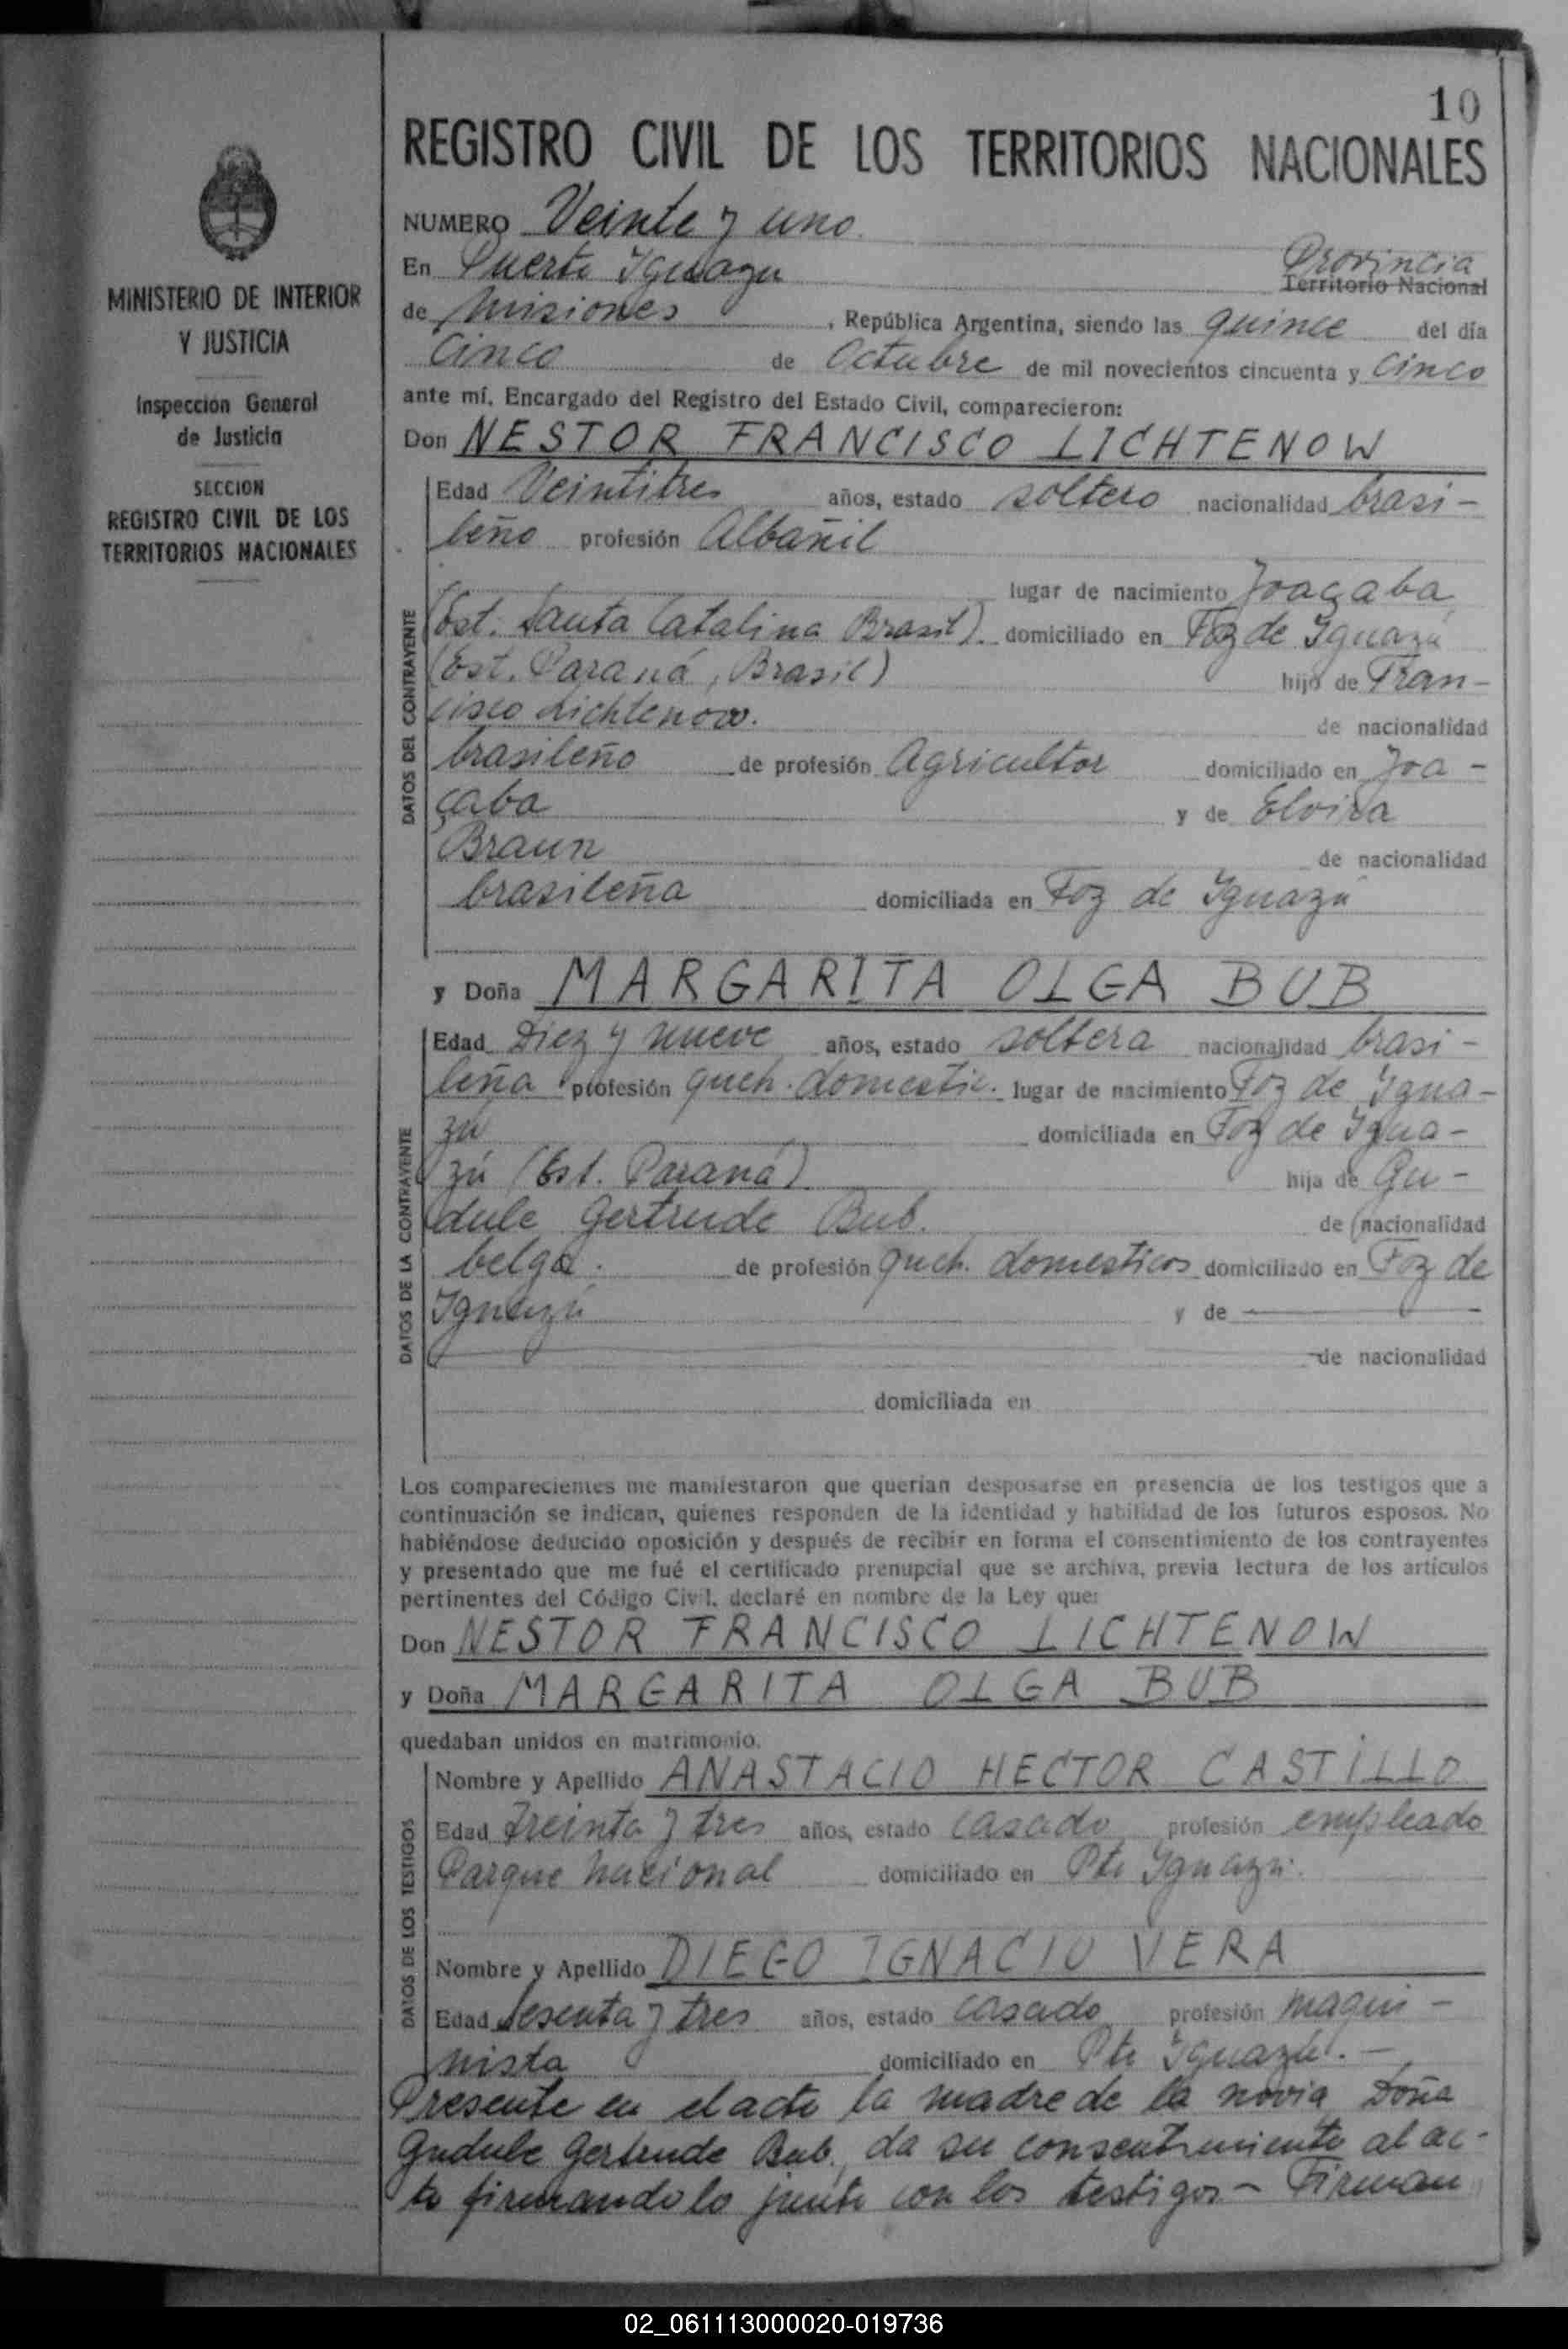 10
REGISTRO CIVIL DE LOS TERRITORIOS NACIONALES
MINISTERIO DE INTERIOR
Y JUSTICIA
Inspección General
de Justicia
SECCION
REGISTRO CIVIL DE LOS
TERRITORIOS NACIONALES
NUMERO Veinte y uno
En Puerto Iguazu Provincia
Territorio Nacional
de Misiones, República Argentina, siendo las quince del día
Cinco de Octubre de mil novecientos cincuenta y cinco
ante mí, Encargado del Registro del Estado Civil, comparecieron:
Don NESTOR FRANCISCO LICHTENOW
DATOS DEL CONTRAYENTE
Edad Veintitres años, estado soltero nacionalidad brasi-
leño profesión Albañil
lugar de nacimiento Joaçaba
(Est. Santa Catalina Brasil). domiciliado en Foz de Iguazú
(Est. Paraná, Brasil) hijo de Fran-
cisco Lichtenow. de nacionalidad
brasileño de profesión Agricultor domiciliado en Joa-
çaba y de Elvira
Braun de nacionalidad
brasileña domiciliada en Foz de Iguazú
y Doña MARGARITA OLGA BUB
DATOS DE LA CONTRAYENTE
Edad Diez y nueve años, estado soltera nacionalidad brasi-
leña profesión queh. domestic. lugar de nacimiento Foz de Igua-
zú domiciliada en Foz de Igua-
zú (Est. Paraná) hija de Gu-
dule Gertrude Bub. de nacionalidad
belga. de profesión queh. domesticos domiciliado en Foz de
Iguazú y de
de nacionalidad
domiciliada en
Los comparecientes me manifestaron que querían desposarse en presencia de los testigos que a
continuación se indican, quienes responden de la identidad y habilidad de los futuros esposos. No
habiéndose deducido oposición y después de recibir en forma el consentimiento de los contrayentes
y presentado que me fué el certificado prenupcial que se archiva, previa lectura de los artículos
pertinentes del Código Civil, declaré en nombre de la Ley que:
Don NESTOR FRANCISCO LICHTENOW
y Doña MARGARITA OLGA BUB
quedaban unidos en matrimonio.
DATOS DE LOS TESTIGOS
Nombre y Apellido ANASTACIO HECTOR CASTILLO
Edad Treinta y tres años, estado casado profesión empleado
Parque Nacional domiciliado en Pto Iguazú.
Nombre y Apellido DIEGO IGNACIO VERA
Edad Sesenta y tres años, estado casado profesión maqui-
nista domiciliado en Pto Iguazú. -
Presente en el acto la madre de la novia Doña
Gudule Gertrude Bub, da su consentimiento al ac-
to firmandolo junto con los testigos - Firman
02_061113000020-019736